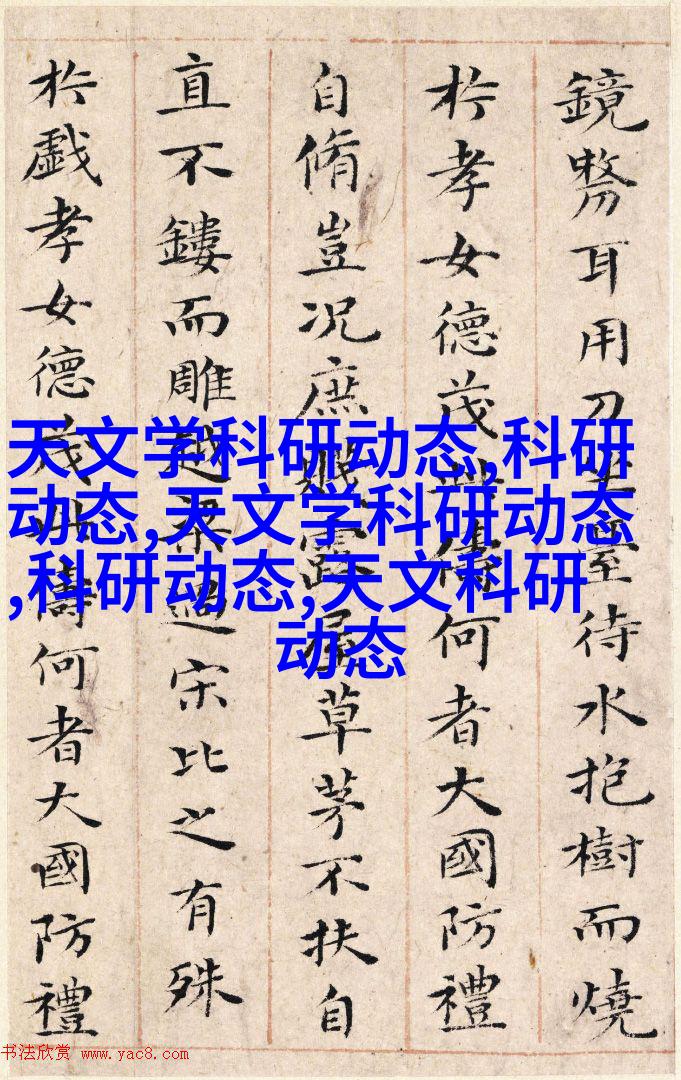 鏡剺耳用刀臺待水抱樹而燒
於孝女德茂此儔何者大國防禮
自脩豈況庶賤露屋草茅不扶自
直不鏤而雕越梁過宋比之有殊
於戲孝女德茂此儔何者大國防禮
天文学科研动态,科研
动态,天文学科研动态
,科研动态,天文科研
动态
书法欣赏 www.yac8.com